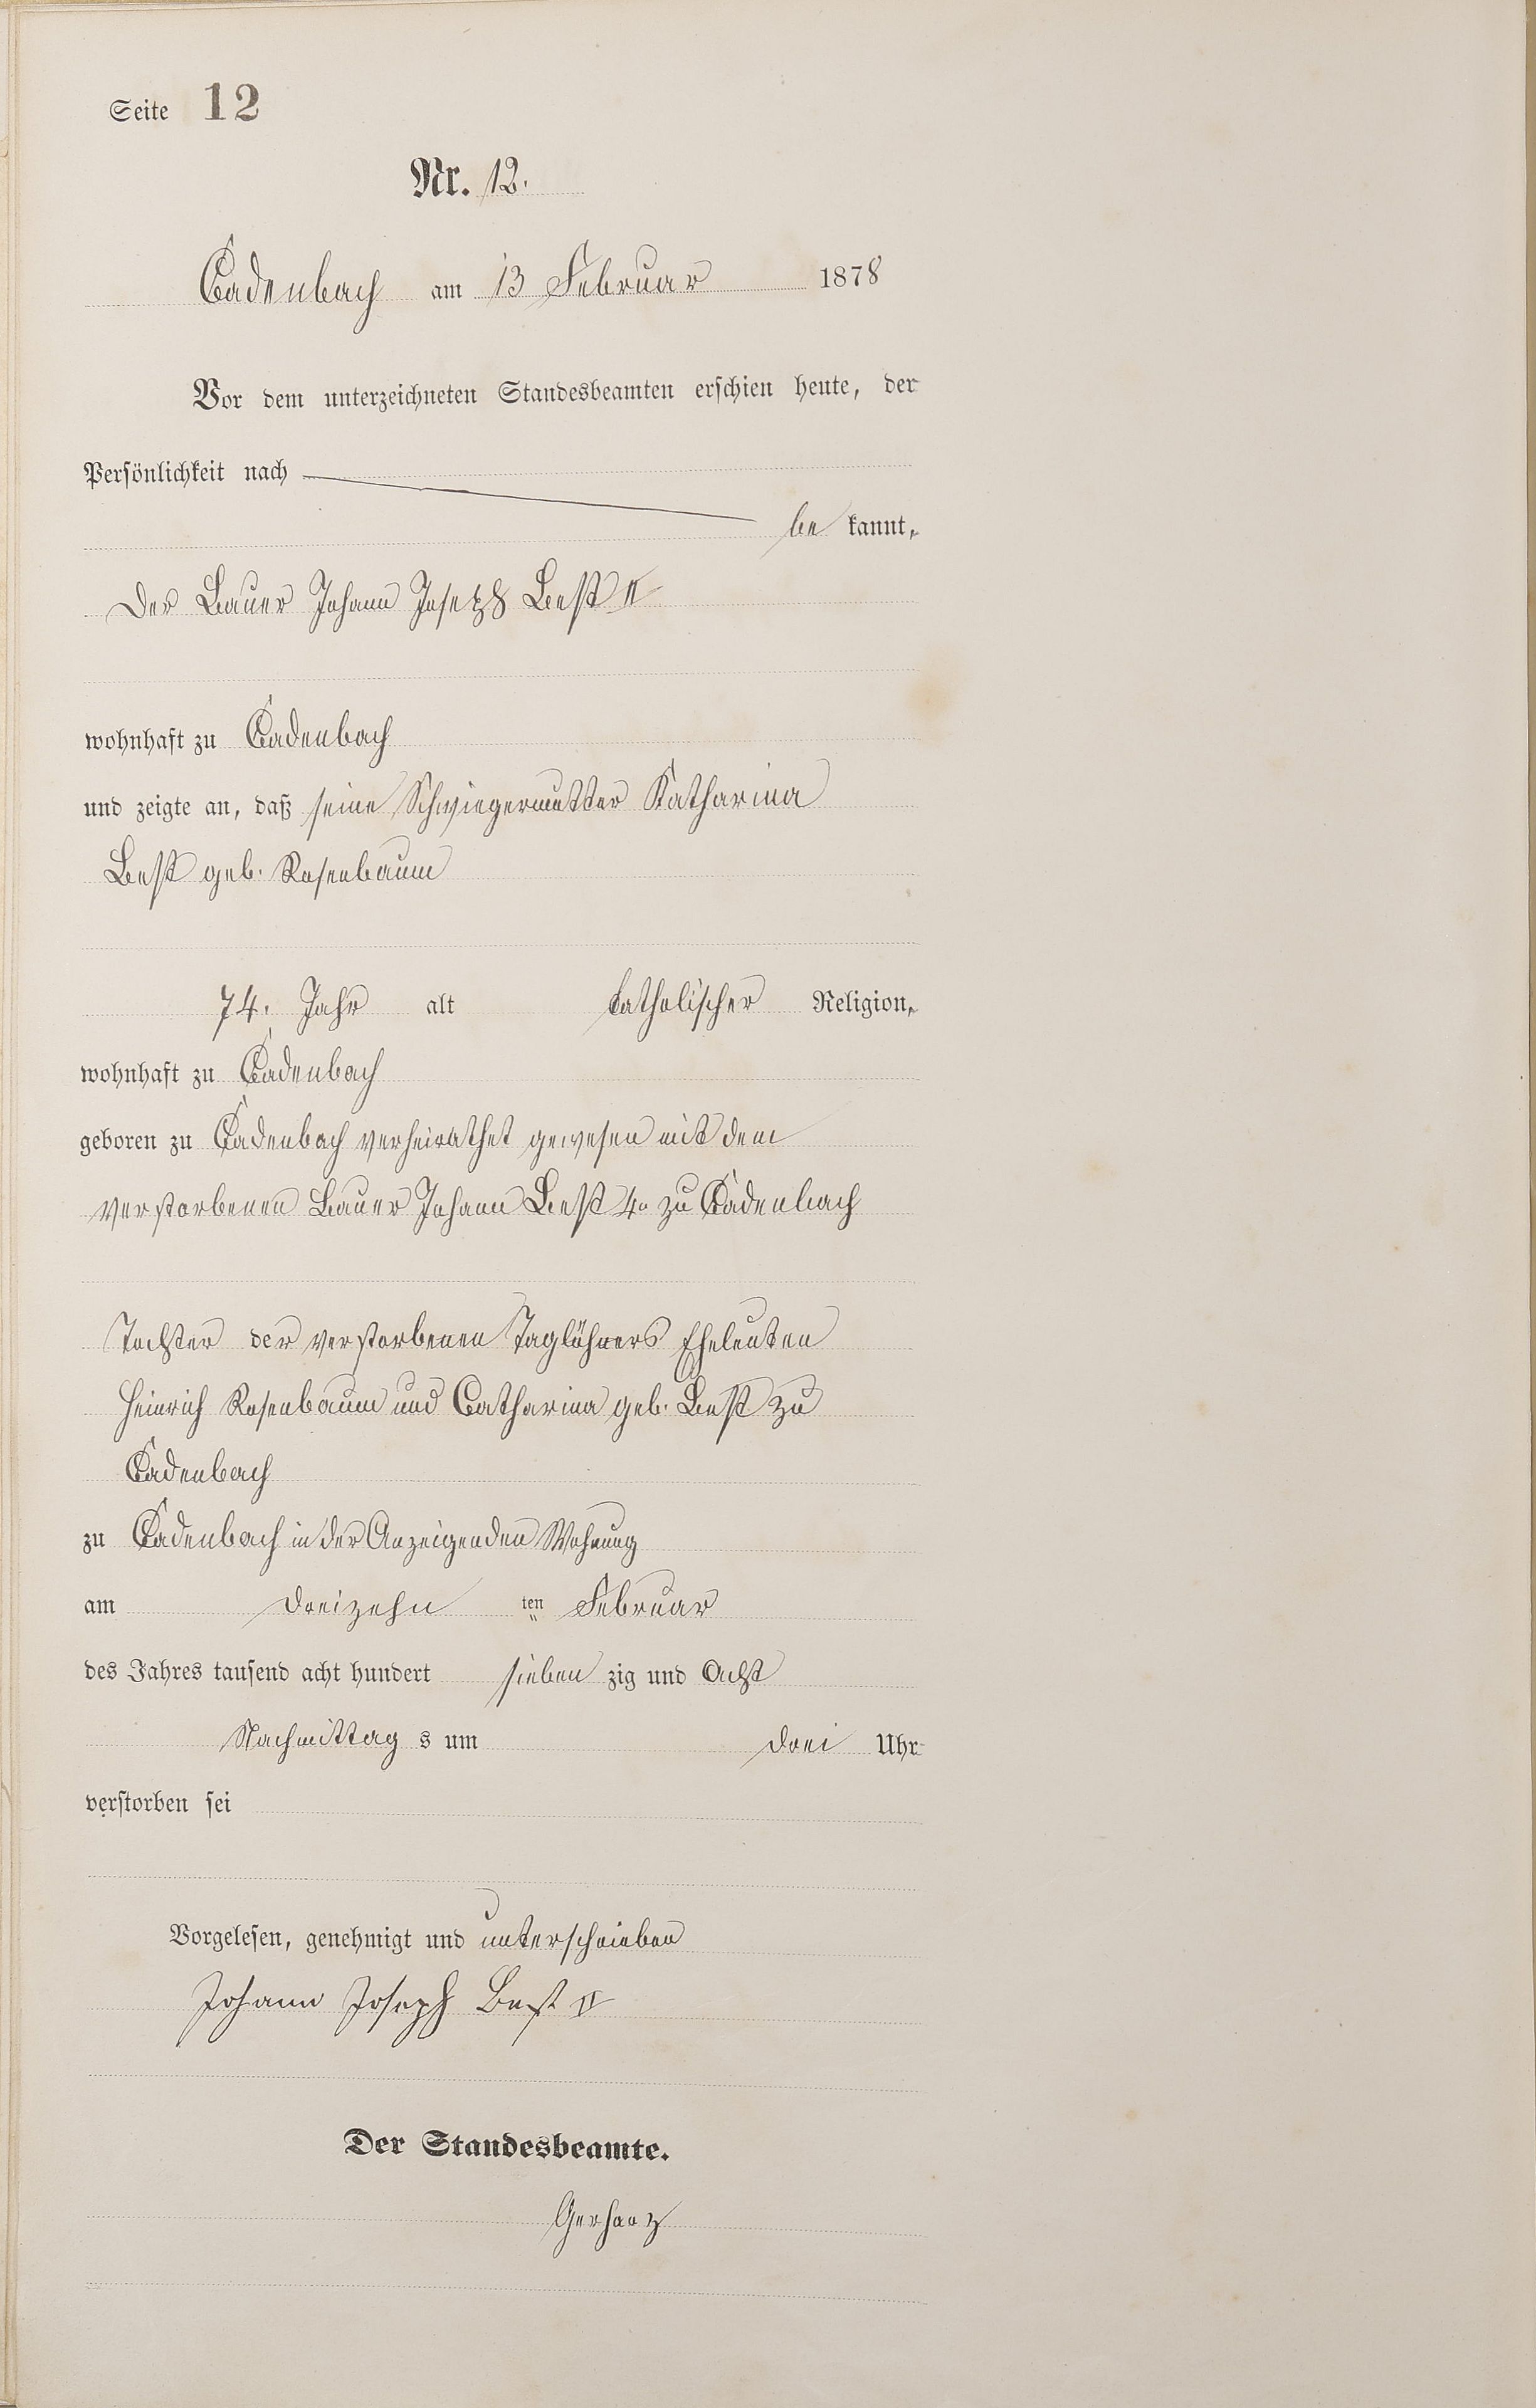 Seite 12
Nr. 12.
Cadenbach am 13 Februar 1878
Vor dem unterzeichneten Standesbeamten erschien heute, der
Persönlichkeit nach
be kannt,
Der Bauer Johann Joseph Best II
wohnhaft zu Cadenbach
und zeigte an, daß seine Schwiegermutter Katharina
Best geb. Rosenbaum
74. Jahr alt katholischer Religion,
wohnhaft zu Cadenbach
geboren zu Cadenbach verheirathet gewesen mit dem
verstorbenen Bauer Johann Best 4n zu Cadenbach
Tochter der verstorbenen Taglöhners Eheleuten
Heinrich Rosenbaum und Catharina geb. Best zu
Cadenbach
zu Cadenbach in der Anzeigenden Wohnung
am dreizehn ten Februar
des Jahres tausend acht hundert sieben zig und Acht
Nachmittag s um drei Uhr
verstorben sei
Vorgelesen, genehmigt und unterschrieben
Johann Joseph Best II
Der Standesbeamte.
Gerharz